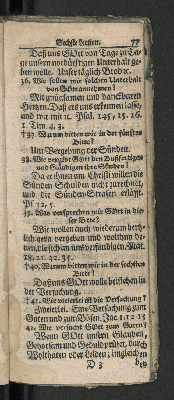 Sechste Lection. 77
Daß uns GOtt von Tage zu Ta-
ge unsern nothdürftigen Unterhalt ge-
ben wolle. Unser täglich Brod ꝛc.
36. Wie sollen wir solchen Unterhalt
von GOtt annehmen?
Mit gnügsamen und danckbaren
Hertzen. Daß ers uns erkennen lasse,
und wir mit ꝛc. Psal. 145, 15. 16.
1. Tim. 4, 3.
†37. Warum bitten wir in der fünften
Bitte?
Um Vergebung der Sünden.
38. Wie vergibt GOtt den Bußfertigen
und Gläubigen ihre Sünden?
Da er ihnen um Christi willen die
Sünden Schulden nicht zurechnet,
und die Sünden-Straffen erläßt.
Ps. 32, 5.
39. Was versprechen wir GOtt in dieser
Bitte?
Wir wollen auch wiederum hertz-
lich gern vergeben, und wohlthun
denen, die sich an uns versündigen. Matt.
18, 21. 22. 35.
†40. Warum bitten wir in der sechsten
Bitte?
Daß uns GOtt wolle beystehen in
der Versuchung.
†41. Wie vielerley ist die Versuchung?
Zweierlei. Eine Versuchung zum
Guten und zum Bösen. Jac. 1, 12. 13
42. Wie versucht GOtt zum Guten?
Wenn GOtt unsern Glauben,
Gehorsam und Gedult prüfet, durch
Wolthaten oder Leiden; ingleichen
D 3 bey